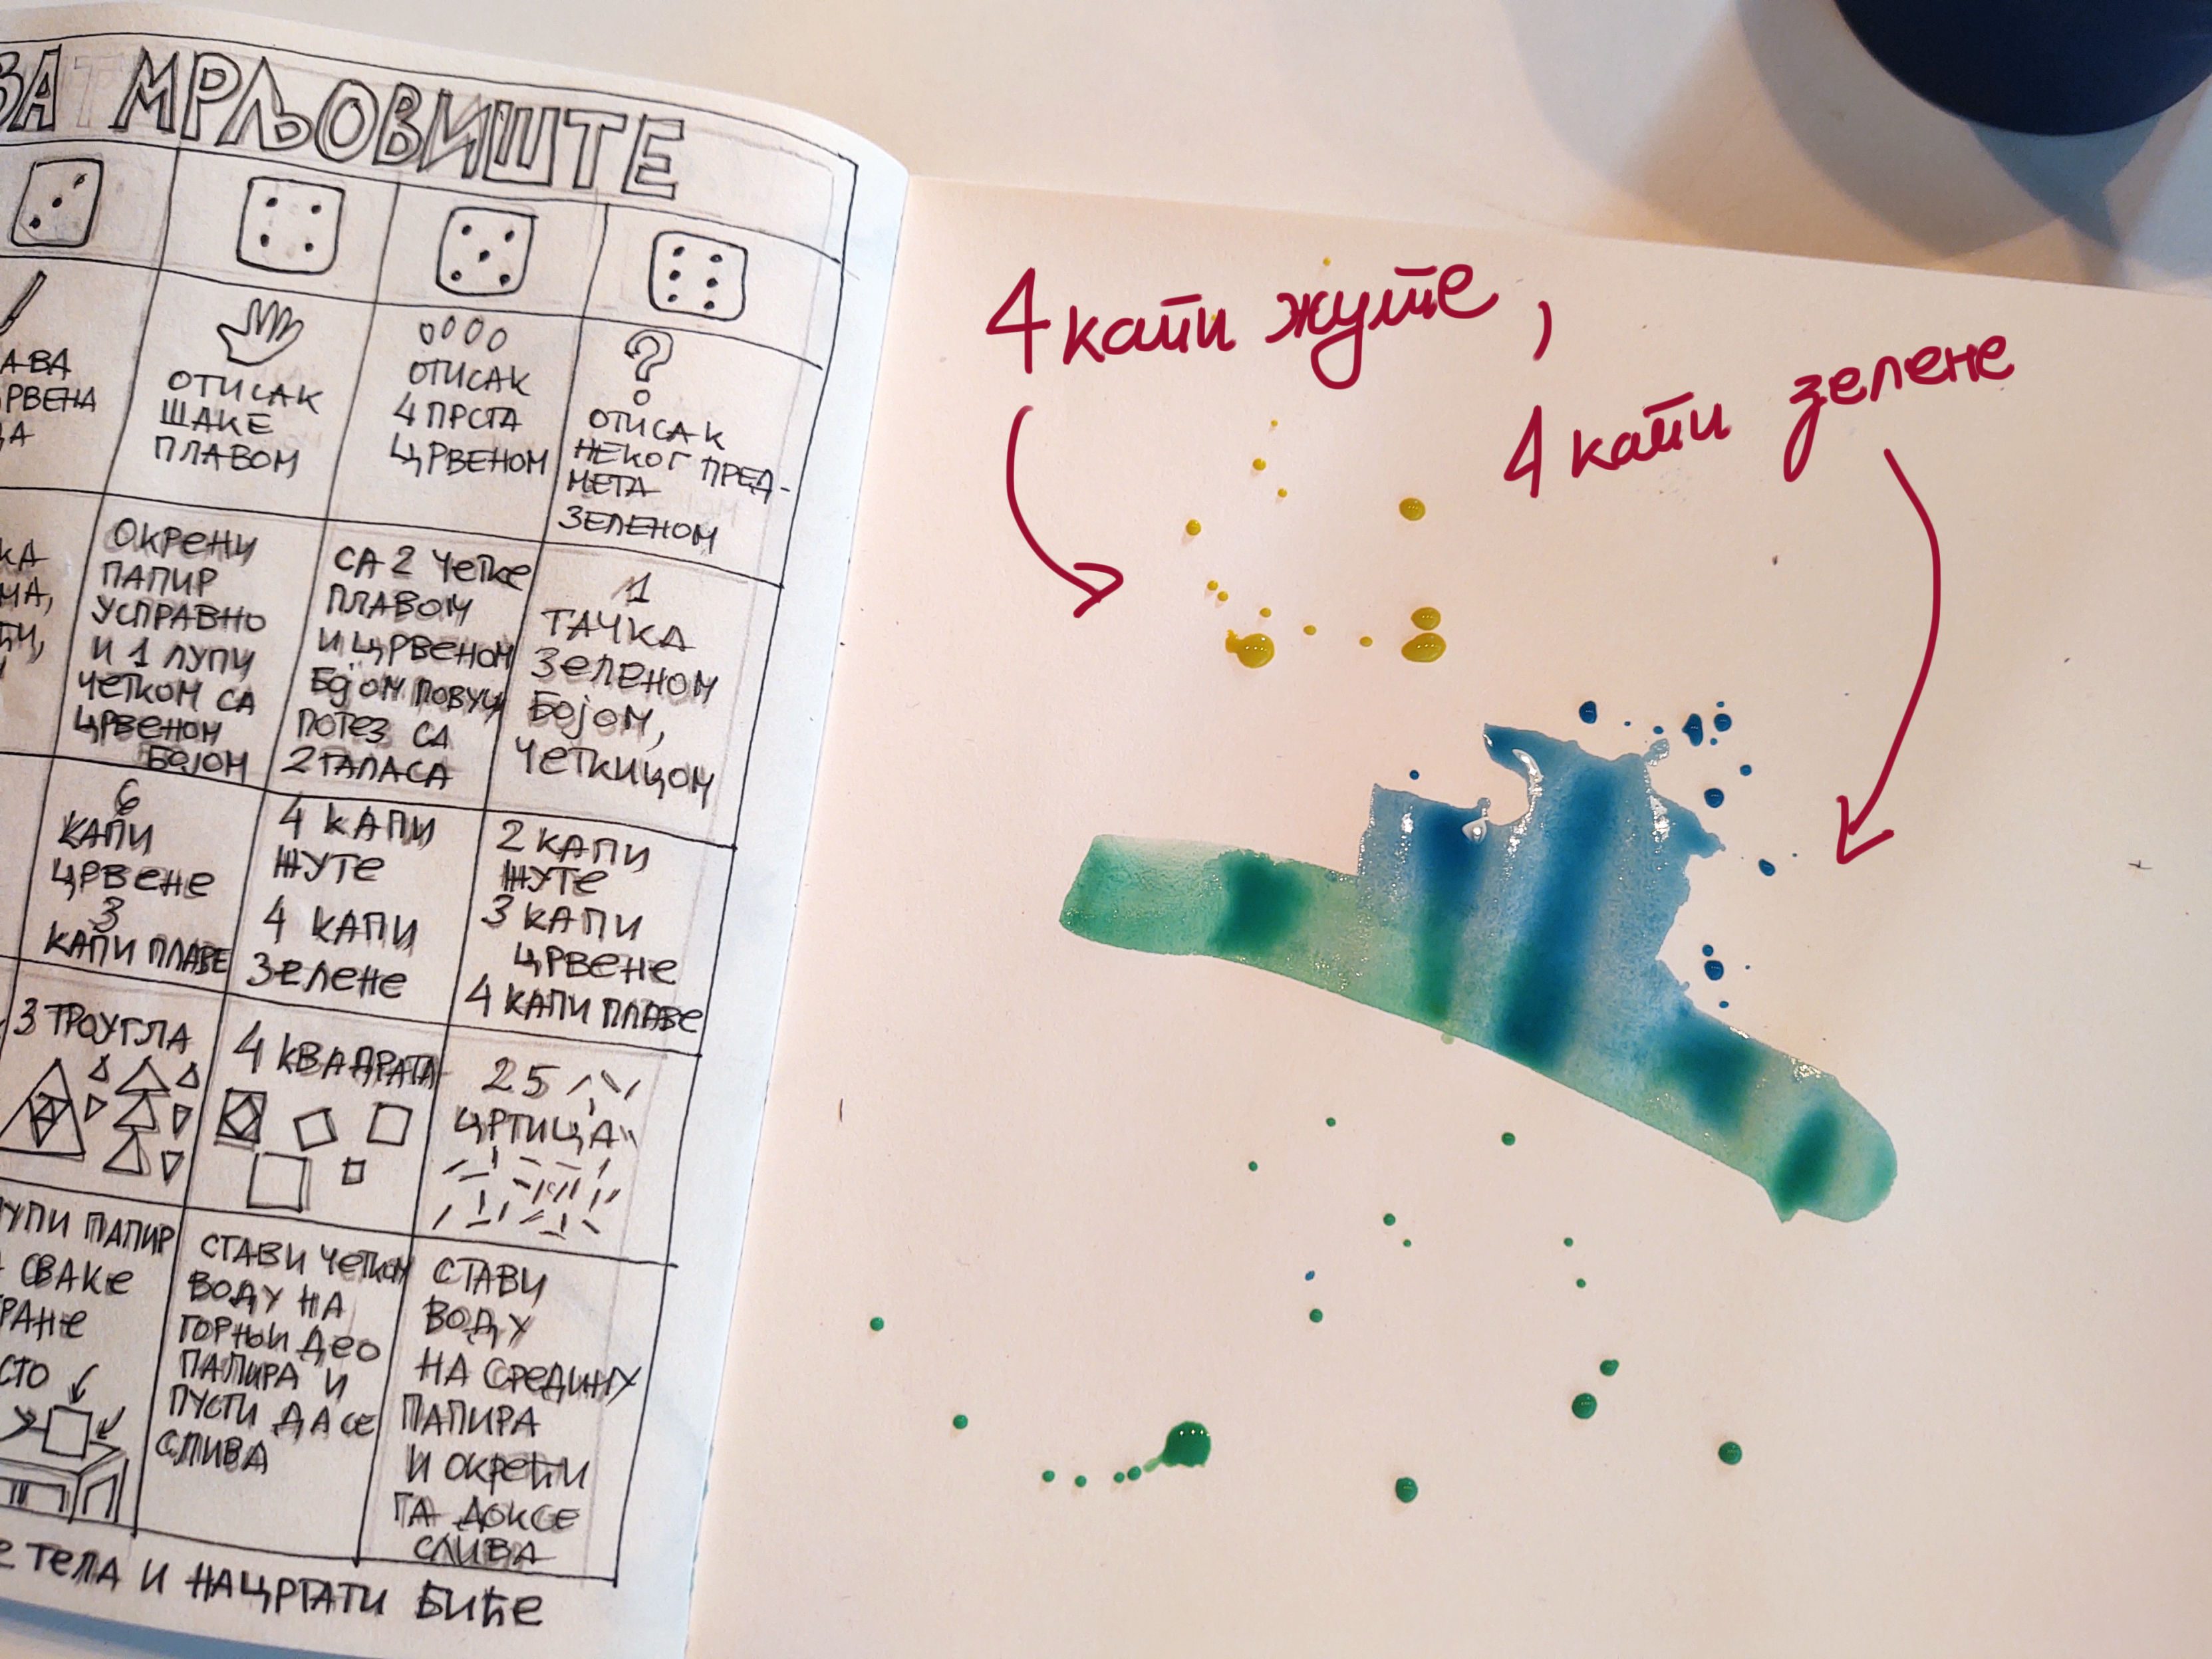 МРЉОВИШТЕ
ОТИСАК
ШАКЕ
ПЛАВОМ
ОТИСАК
4 ПРСТА
ЦРВЕНОМ
?
ОТИСАК
НЕКОГ ПРЕД-
МЕТА
ЗЕЛЕНОМ
ОКРЕНИ
ПАПИР
УСПРАВНО
И 1 ЛУПИ
ЧЕТКОМ СА
ЦРВЕНОМ
БОЈОМ
СА 2 ЧЕТКЕ
ПЛАВОМ
И ЦРВЕНОМ
БОЈОМ ПОВУЦИ
ПОТЕЗ СА
2 ТАЛАСА
1
ТАЧКА
ЗЕЛЕНОМ
БОЈОМ,
ЧЕТКИЦОМ
6
КАПИ
ЦРВЕНЕ
3
КАПИ ПЛАВЕ
4 КАПИ
ЖУТЕ
4 КАПИ
ЗЕЛЕНЕ
2 КАПИ
ЖУТЕ
3 КАПИ
ЦРВЕНЕ
4 КАПИ ПЛАВЕ
3 ТРОУГЛА
4 КВАДРАТА
25
ЦРТИЦА
ПАПИР
СВАКЕ
СТАВИ ЧЕТКОМ
ВОДУ НА
ГОРЊИ ДЕО
ПАПИРА И
ПУСТИ ДА СЕ
СЛИВА
СТАВИ
ВОДУ
НА СРЕДИНУ
ПАПИРА
И ОКРЕЋИ
ГА ДОК СЕ
СЛИВА
ТЕЛА И НАЦРТАТИ БИЋЕ
4 капи жуте,
4 капи зелене